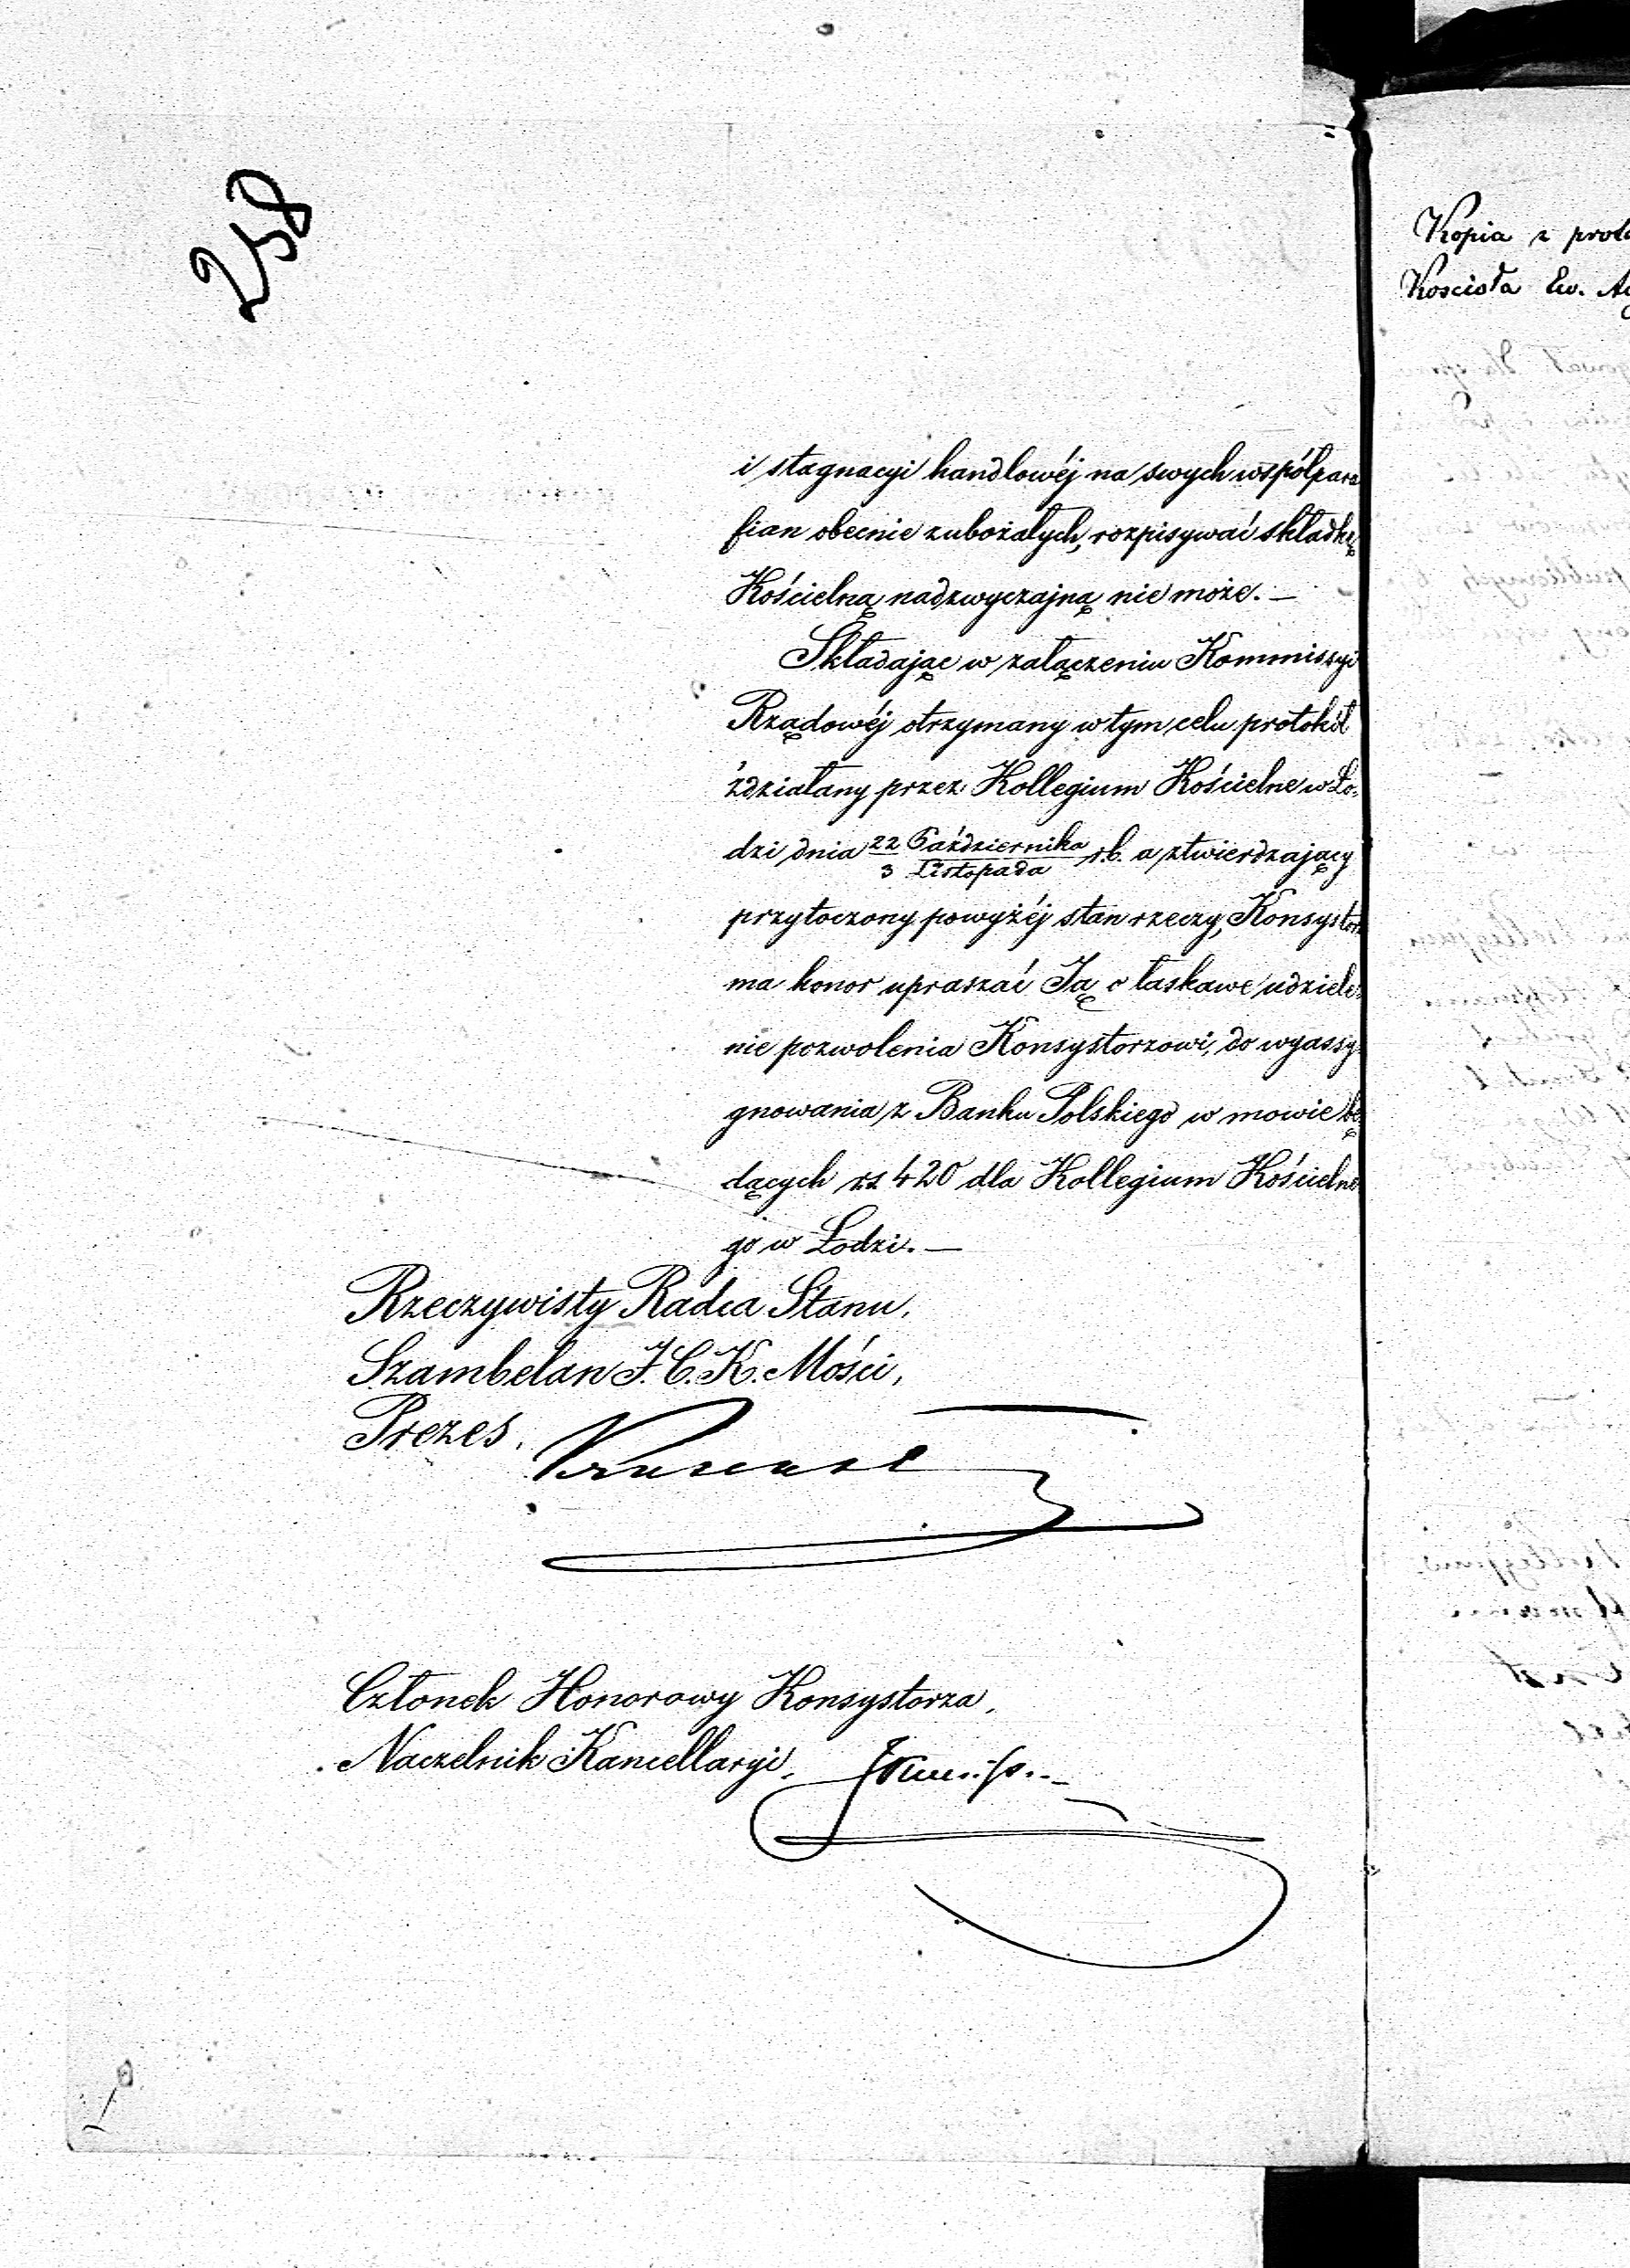 258
i stagnacyi handlowéj na swych współpara
fian obecnie zubożałych, rozpisywać składkę
Kościelną nadzwyczajną nie może. —
Składając w załączeniu Kommissyi
Rządowéj otrzymany w tym celu protokół
zdziałany przez Kollegium Kościelne w Ło-
dzi dnia 22 Października / 3 Listopada r.b. a stwierdzający
przytoczony powyżéj stan rzeczy, Konsystorz
ma honor upraszać Ją o łaskawe udziele-
nie pozwolenia Konsystorzowi, do wyassy-
gnowania z Banku Polskiego w mowie bę-
dących rs 420 dla Kollegium Kościelne-
go w Łodzi. —
Rzeczywisty Radca Stanu,
Szambelan J. C. K. Mości,
Prezes,
Członek Honorowy Konsystorza,
Naczelnik Kancellaryi,
Kopia z proto
Kościoła Ew. Au